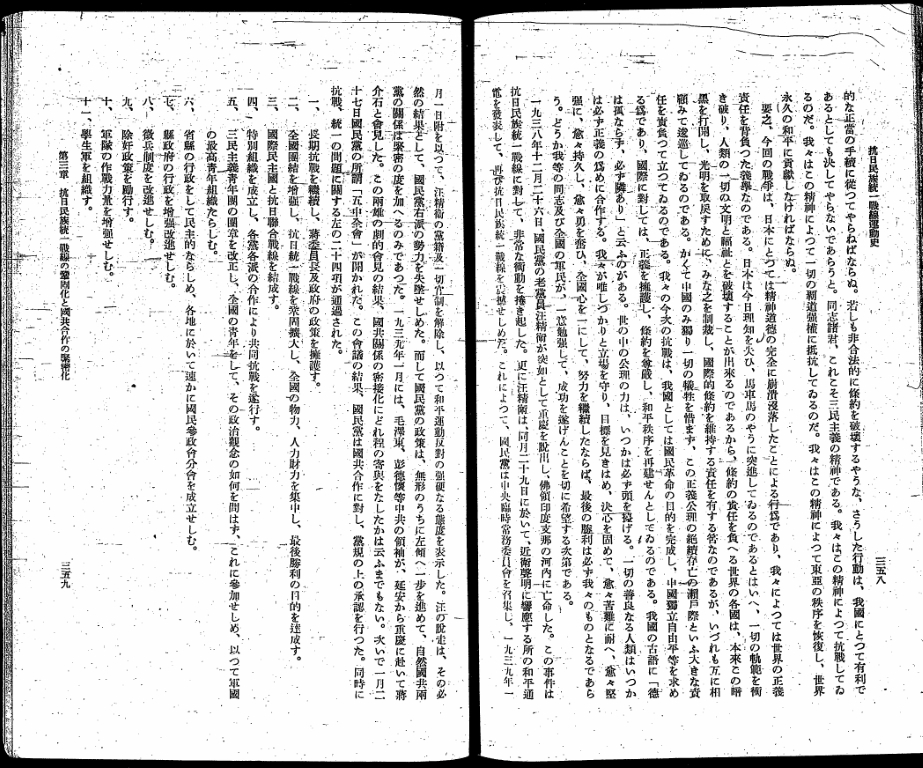 抗日民族統一戰線運動史
三五八
的な正當の手續に從つてやらねばならぬ。若しも非合法的に條約を破壞するやうな、さうした行動は、我國にとつて有利で
あるとしても決してやらないであらうと。同志諸君、これこそ三民主義の精神である。我々はこの精神によつて抗戰してゐ
るのだ。我々はこの精神によつて一切の覇道强權に抵抗してゐるのだ。我々はこの精神によつて東亞の秩序を恢復し、世界
永久の和平に貢獻しなければならぬ。
要之、今回の戰爭は、日本にとつては精神道德の完全に崩潰沒落したことによる行爲であり、我々によつては世界の正義
責任を背負つた義擧なのである。日本は今日理知を失ひ、馬車馬のやうに突進してゐるのであるとはいへ、一切の軌範を衝
き破り、人類の一切の文明と福祉とを破壞することが出來るのであるから、條約の責任を負へる世界の各國は、本來この暗
黑を打開し、光明を取戾すために、みな之を制裁し、國際的條約を維持する責任を有する筈なのであるが、いづれも互に相
顧みて逡巡してゐるのである。かくて中國のみ獨り一切の犧牲を惜まず、この正義公理の絕續存亡の瀨戶際といふ大きな責
任を背負つて立つてゐるのである。我々の今次の抗戰は、我國としては國民革命の目的を完成し、中國獨立自由平等を求め
る爲であり、國際に對しては、正義を擁護し、條約を尊嚴し、和平秩序を再建せんとしてゐるのである。我國の古語に「德
は孤ならず、必ず隣あり」と云ふのがある。世の中の公理の力は、いつかは必ず頭を擡げる。一切の善良なる人類はいつか
は必ず正義の爲めに合作する。我々が唯しつかりと立場を守り、目標を見きはめ、決心を固めて、愈々苦難に耐へ、愈々堅
强に、愈々持久し、愈々勇を奮ひ、全國心を一にして、努力を繼續したならば、最後の勝利は必ず我々のものとなるであら
う。どうか我等の同志及び全國の軍民が、一意勉强して、成功を遂げんことを切に希望する次第である。
一九三八年十二月二十六日、國民黨の老黨員汪精衛が突如として重慶を脫出し、佛領印度支那の河內に亡命した。この事件は
抗日民族統一戰線に對して、非常な衝動を捲き起した。更に汪精衛は同月二十九日に於いて、近衛聲明に響應する所の和平通
電を發表して、再び抗日民族統一戰線を震撼せしめた。これによつて、國民黨は中央臨時常務委員會を召集し、一九三九年一
月一日附を以つて、汪精衛の黨籍及一切官制を解除し、以つて和平運動反對の强硬なる態度を表示した。汪の脫走は、その必
然の結果として、國民黨右派の勢力を失墜せしめた。而して國民黨の政策は、無形のうちに左傾へ一步を進めて、自然國共兩
黨の關係は緊密の度を加へるのみであつた。一九三九年一月には、毛澤東、彭德懷等中共の領袖が、延安から重慶に赴いて蔣
介石と會見した。この兩雄の劇的會見の結果、國共關係の密接化にどれ程の寄與をなしたかは云ふまでもない。次いで一月二
十七日國民黨の所謂「五中全會」が開かれた。この會議の結果、國民黨は國共合作に對し、黨規の上の承認を行つた。同時に
抗戰、統一の問題に關する左の二十四項が通過された。
一、長期抗戰を繼續し、蔣委員長及政府の政策を擁護す。
二、全國團結を增强し、抗日統一戰線を鞏固擴大し、全國の物力、人力財力を集中し、最後勝利の目的を達成す。
三、國際民主國と抗日聯合戰線を結成す。
四、特別組織を成立し、各黨各派の合作により共同抗戰を遂行す。
五、三民主義靑年團の團章を改正し、全國の靑年をして、その政治觀念の如何を問はず、これに參加せしめ、以つて軍國
の最高靑年組織たらしむ。
六、省縣の行政をして民主的ならしめ、各地に於いて速かに國民參政會分會を成立せしむ。
七、縣政府の行政を增强改進せしむ。
八、徵兵制度を改進せしむ。
九、除奸政策を勵行す。
十、軍隊の作戰力量を增强せしむ。
十一、學生軍を組織す。
第三章 抗日民族統一戰線の鞏固化と國共合作の緊密化
三五九